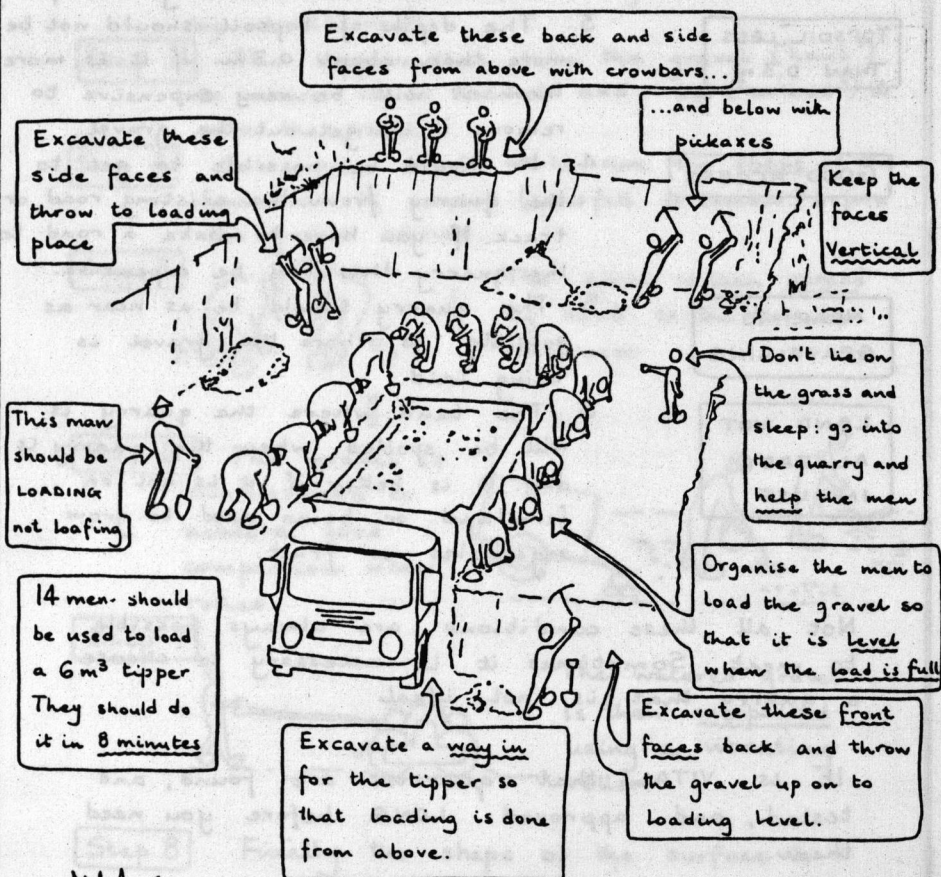 Excavate these back and side
faces from above with crowbars...
...and below with
pickaxes
Excavate these
side faces and
throw to loading
place
Keep the
faces
Vertical
Don't lie on
the grass and
sleep: go into
the quarry and
help the men
This man
should be
LOADING
not loafing
Organise the men to
load the gravel so
that it is level
when the load is full
14 men should
be used to load
a 6m³ tipper
They should do
it in 8 minutes
Excavate a way in
for the tipper, so
that loading is done
from above.
Excavate these front
faces back and throw
the gravel up on to
loading level.